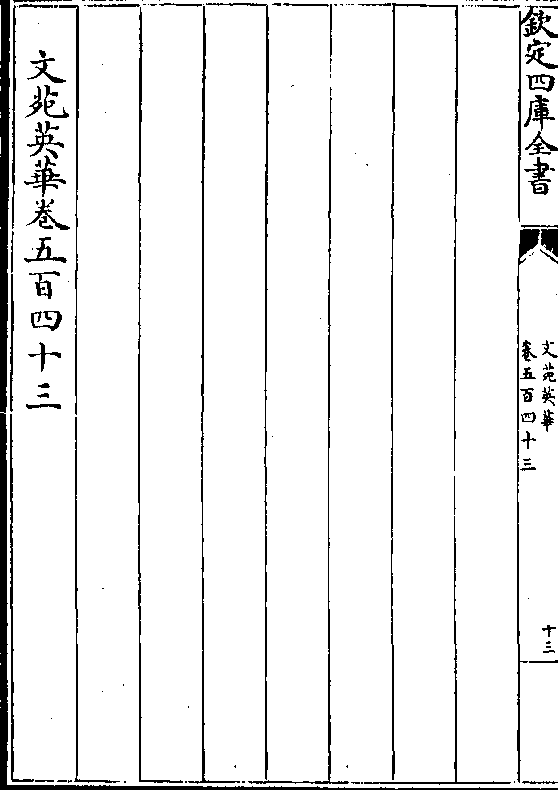 欽定四庫全書
文苑英華
卷五百四十三
十三
文苑英華卷五百四十三